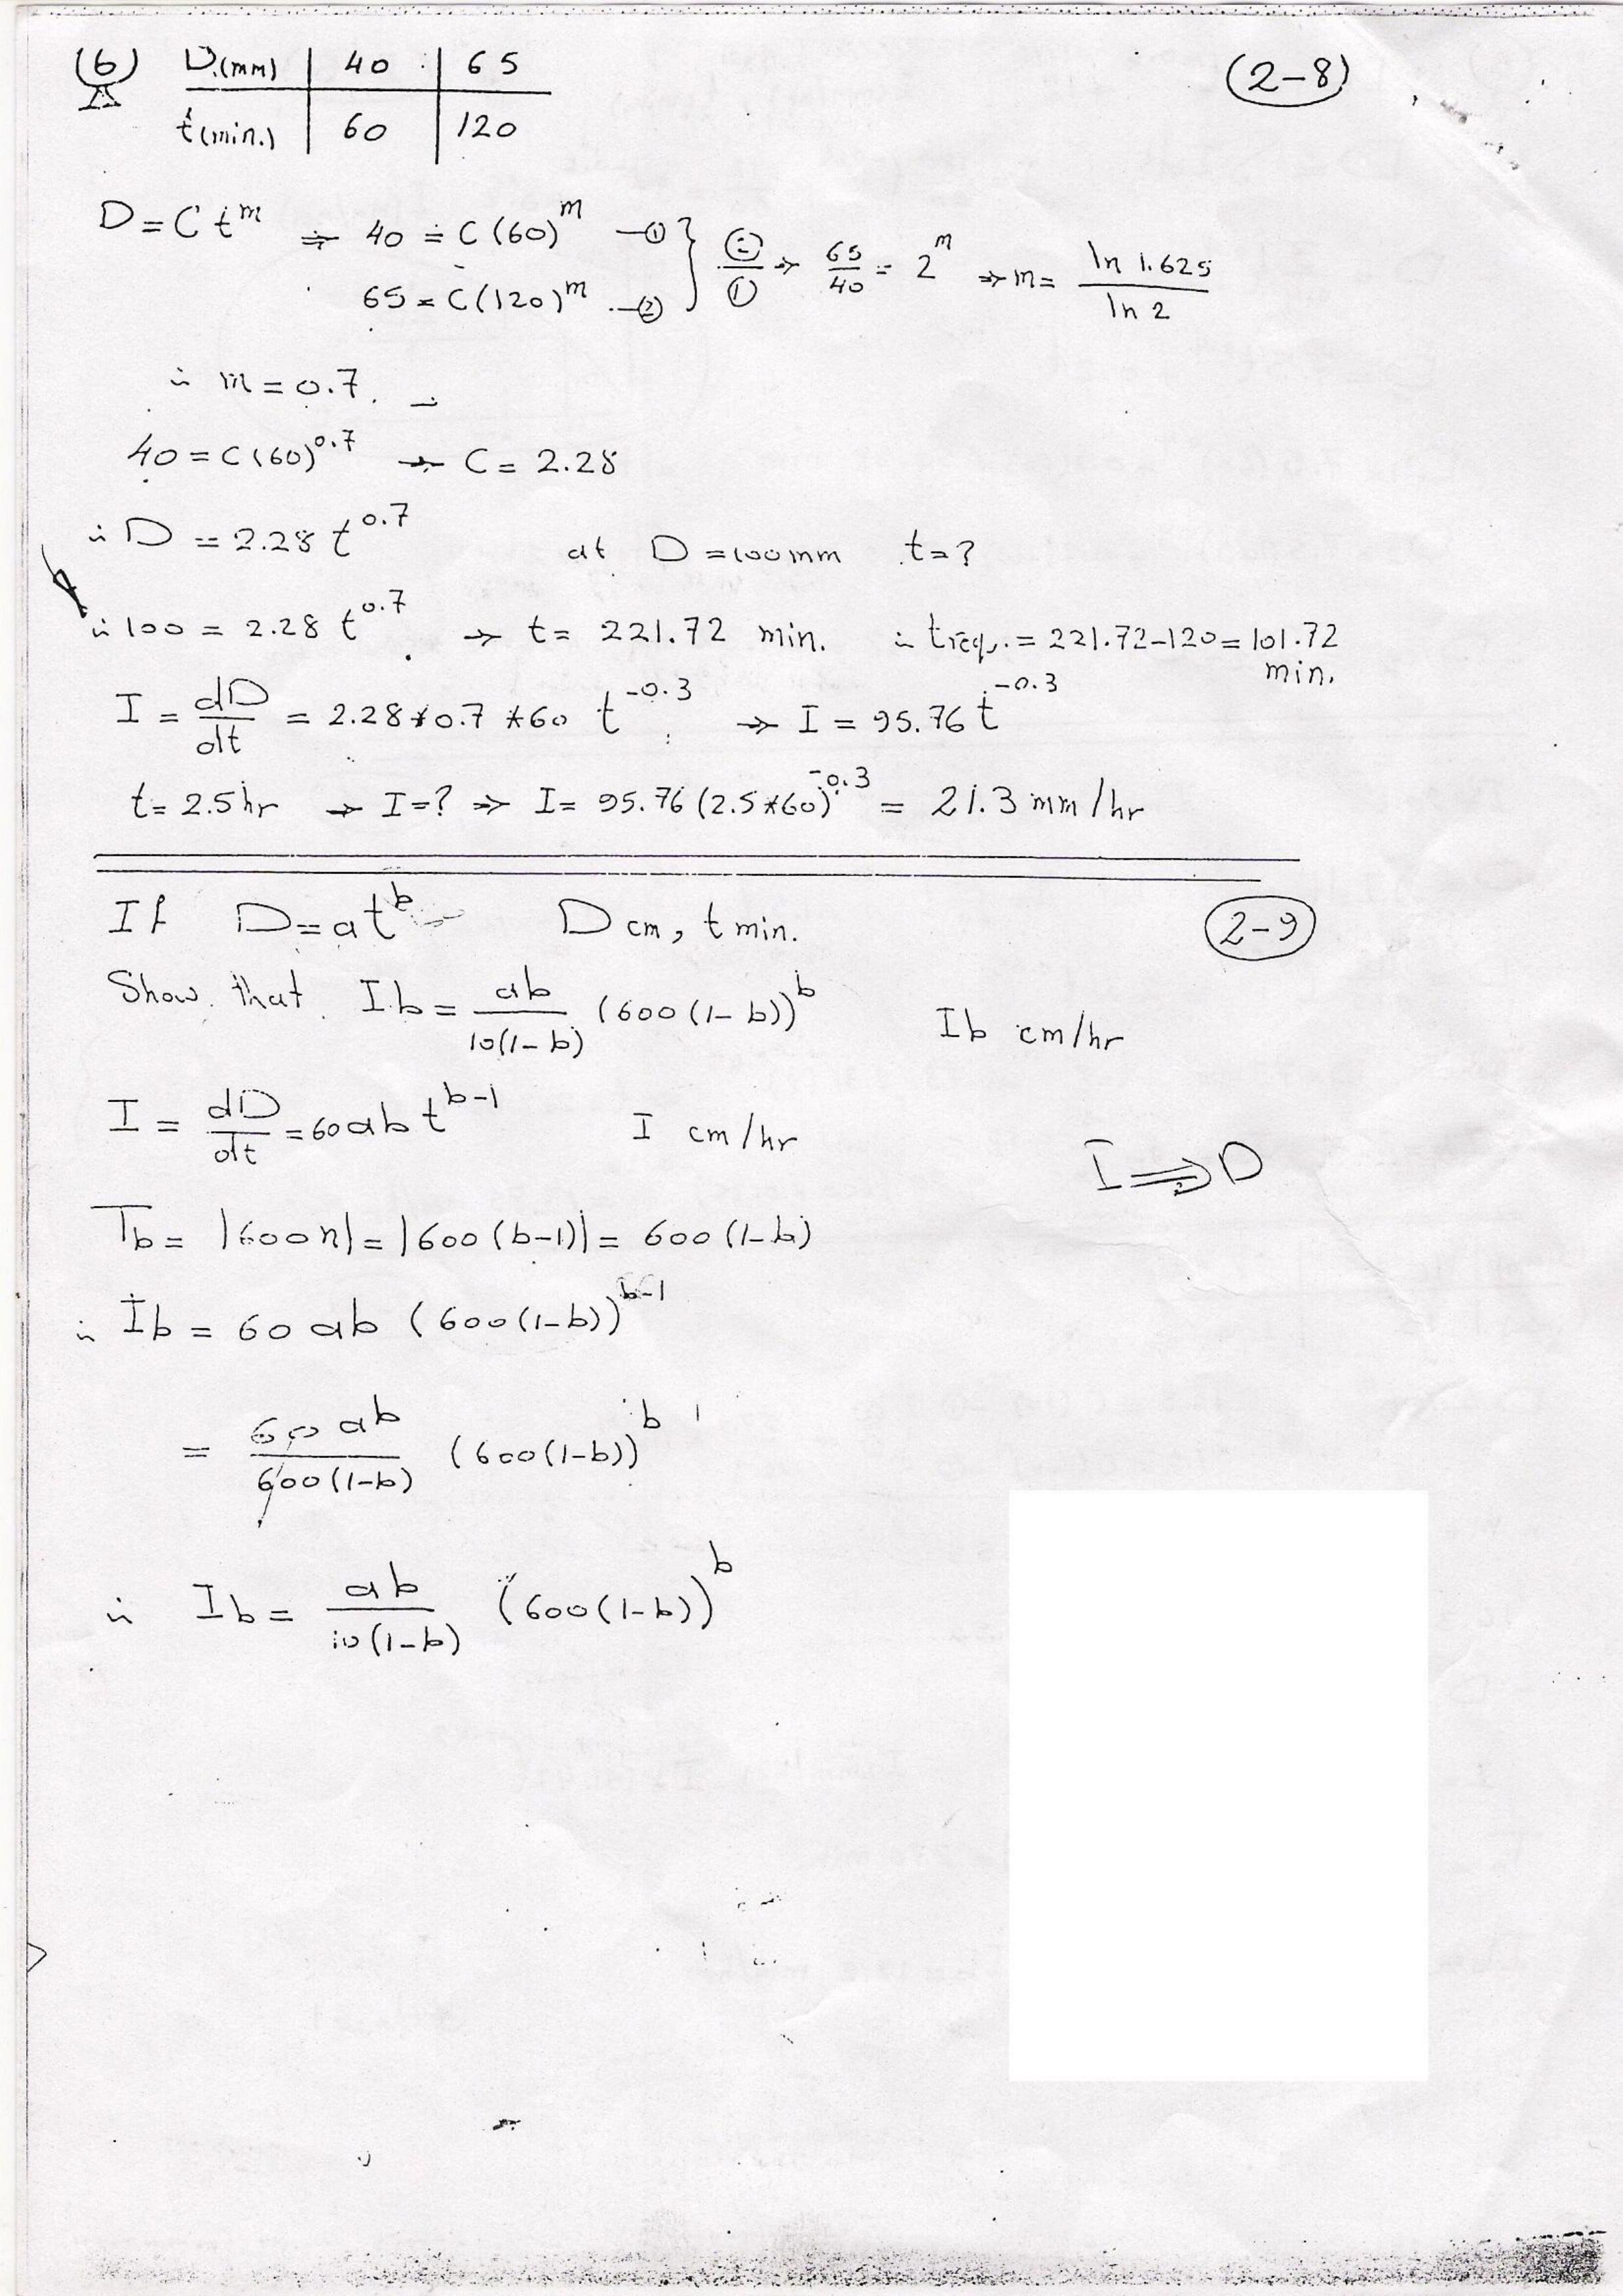 (6) D(mm) | 40 | 65 (2-8)
t(min.) | 60 | 120
D = C t^m ⇒ 40 = C (60)^m —① } ②/① ⇒ 65/40 = 2^m ⇒ m = ln 1.625 / ln 2
65 = C (120)^m —②
∴ m = 0.7
40 = C (60)^0.7 → C = 2.28
∴ D = 2.28 t^0.7 at D = 100 mm t = ?
∴ 100 = 2.28 t^0.7 → t = 221.72 min. ∴ t req. = 221.72 - 120 = 101.72 min.
I = dD/dt = 2.28 * 0.7 * 60 t^-0.3 → I = 95.76 t^-0.3
t = 2.5 hr → I = ? → I = 95.76 (2.5*60)^-0.3 = 21.3 mm/hr
If D = a t^b D cm, t min. (2-9)
Show that Ib = ab / 10(1-b) (600(1-b))^b Ib cm/hr
I = dD/dt = 60 ab t^b-1 I cm/hr
I ⇒ D
Tb = |600 n| = |600 (b-1)| = 600 (1-b)
∴ Ib = 60 ab (600(1-b))^b-1
= 60 ab / 600(1-b) (600(1-b))^b
∴ Ib = ab / 10(1-b) (600(1-b))^b